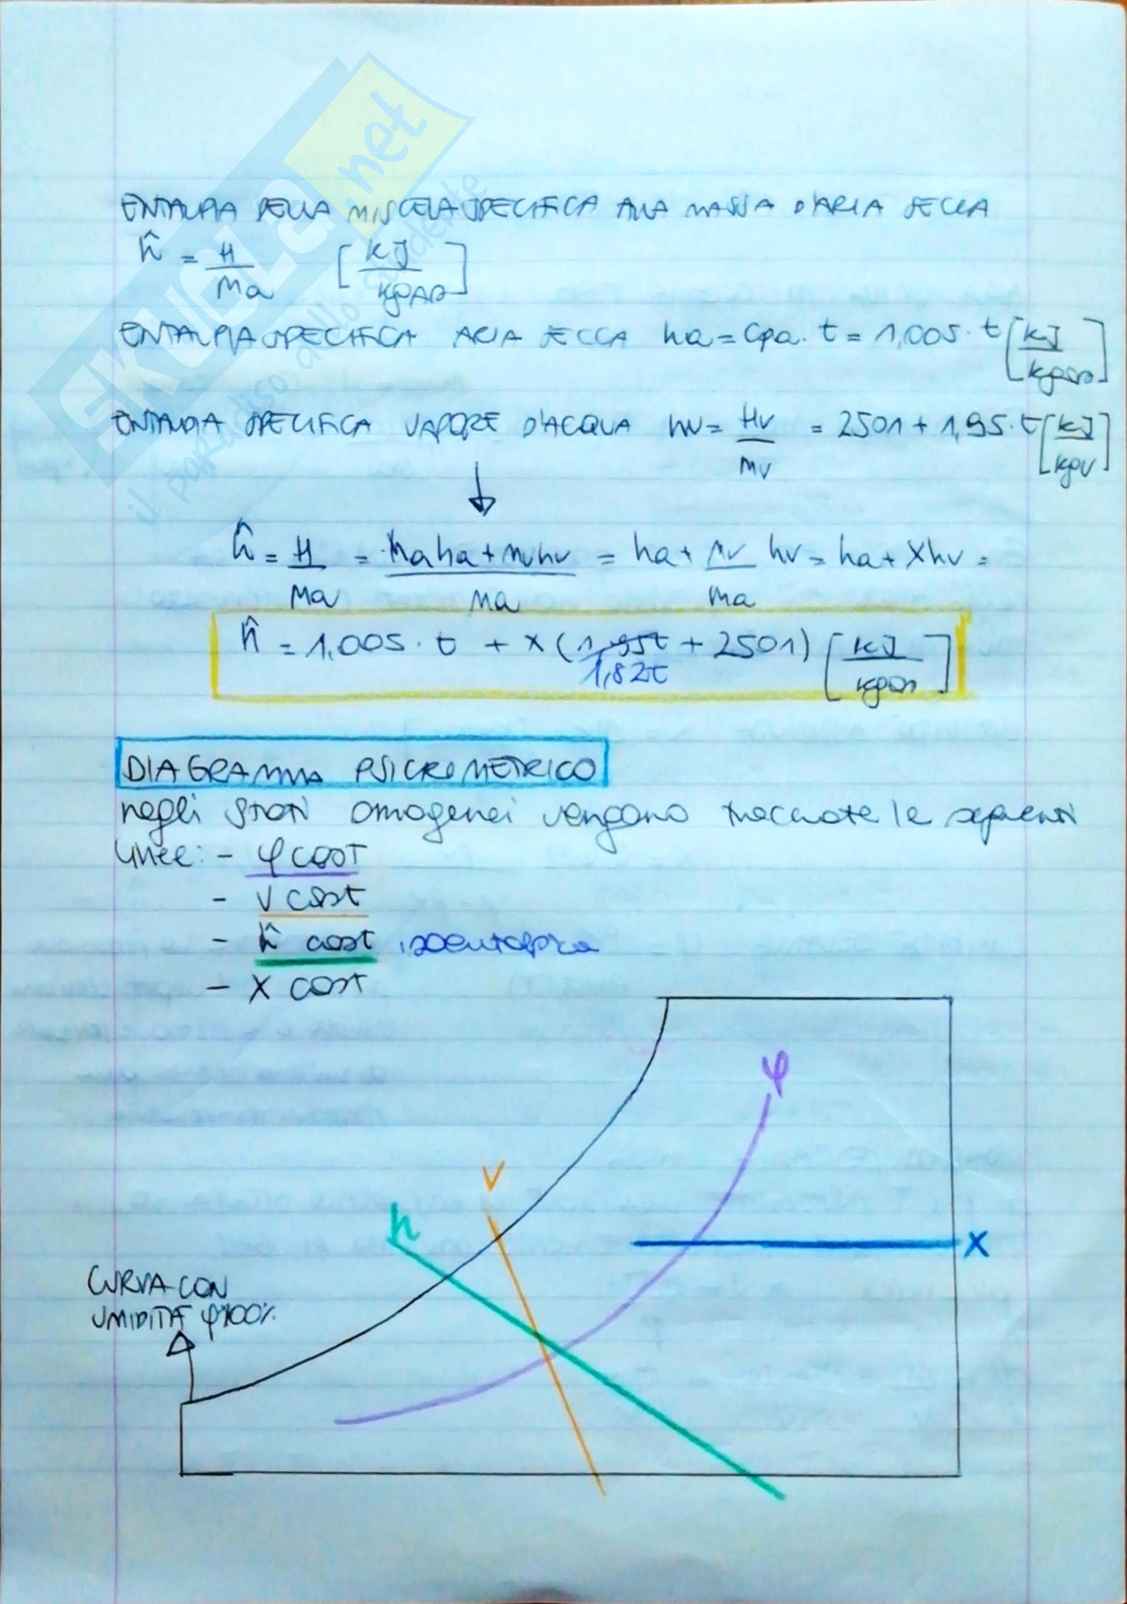 SKUOLA.net
il paradiso dello studente
ENTALPIA DELLA MISCELA SPECIFICA ALLA MASSA D'ARIA SECCA
ĥ = H/Ma [kJ/kgAD]
ENTALPIA SPECIFICA ARIA SECCA ha = Cpa · t = 1,005 · t [kJ/kgas]
ENTALPIA SPECIFICA VAPORE D'ACQUA hv = Hv/mv = 2501 + 1,95 · t [kJ/kgv]
ĥ = H/Ma = (Maha + mvhv)/Ma = ha + mv/ma hv = ha + Xhv =
ĥ = 1,005 · t + x (1,95t + 2501) [kJ/kgas]
1,82t
DIAGRAMMA PSICROMETRICO
negli stati omogenei vengono tracciate le seguenti
linee: - φ cost
- v cost
- ĥ cost isoentalpica
- X cost
φ
v
h
X
CURVA CON
UMIDITÀ φ 100%